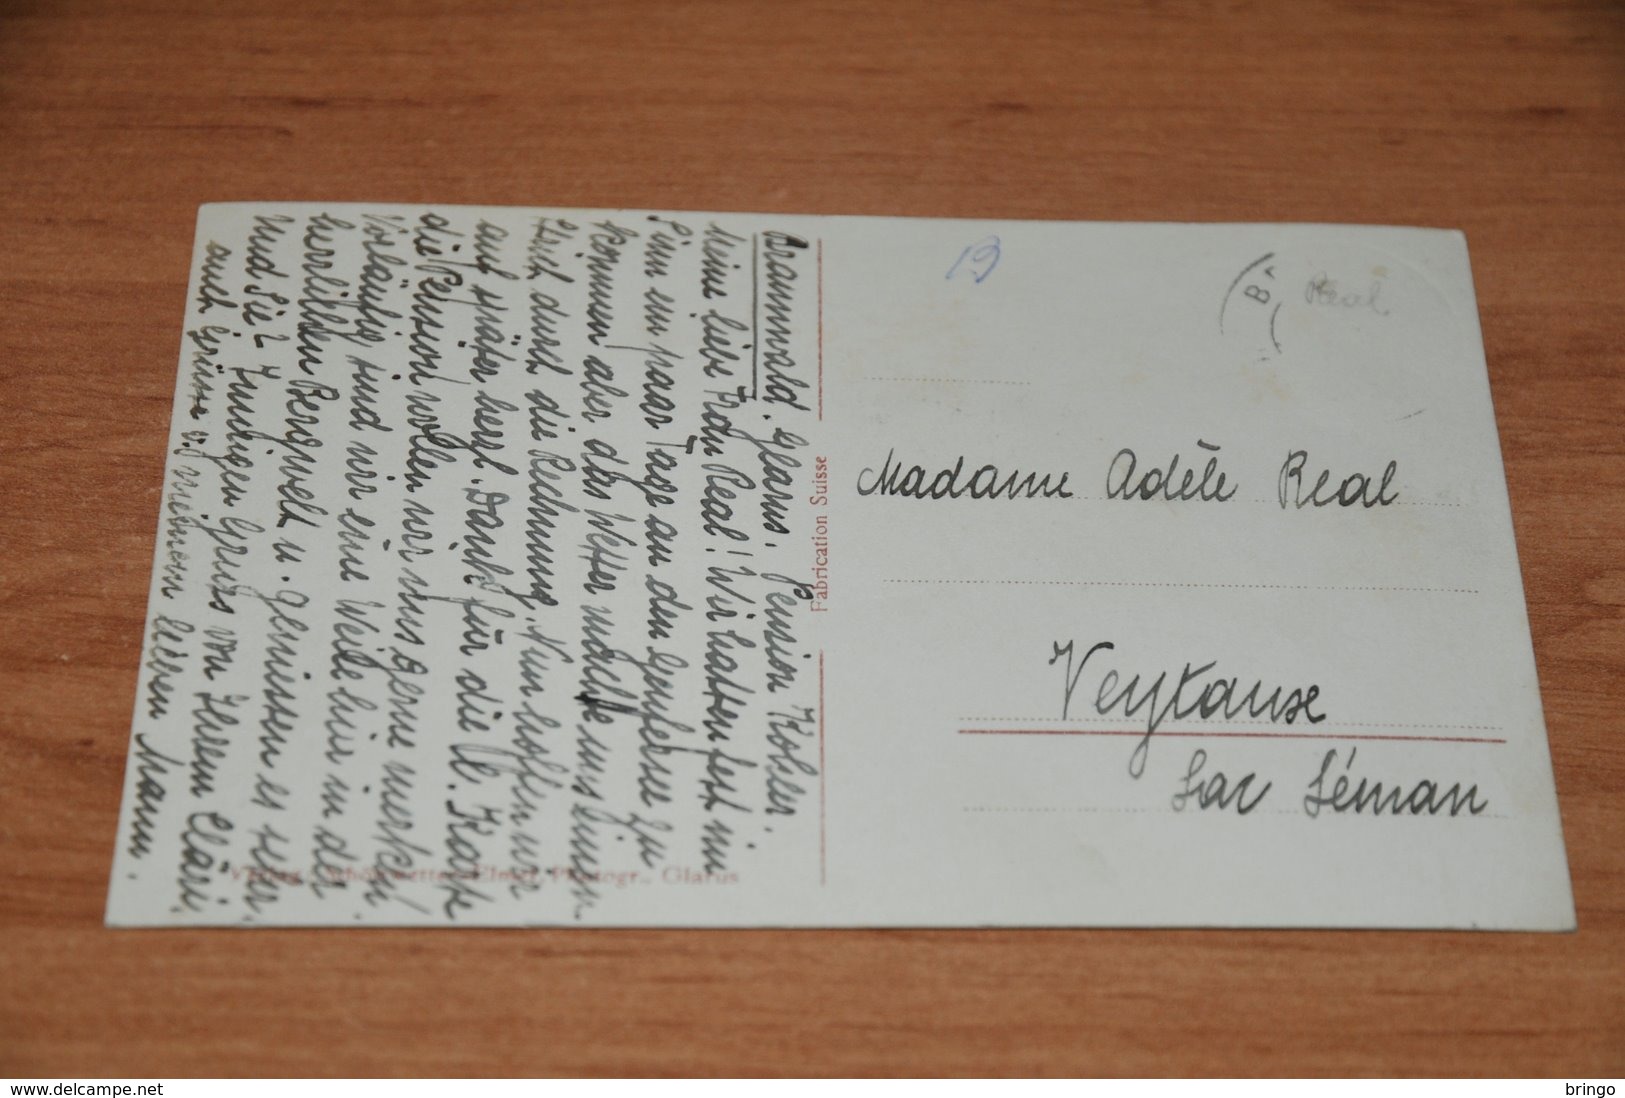 Braunwald. Glarus. Pension Kohler.
Meine liebe Frau Real! Wir hatten fest im
Sinn ein paar Tage an den Genfersee zu
kommen aber das Wetter machte uns einen
Strich durch die Rechnung. Nun hoffen wir
auf später herzl. Dank für die lb. Karte
die Pension wollen wir uns gerne merken!
Vorläufig sind wir eine Weile hier in der
herrlichen Bergwelt u. geniessen es sehr.
Und Sie? Innigen Gruss von Ihrem Cläri,
auch Grüsse v. meinem lieben Mann.
Verlag Schönwetter-Elmer, Photogr., Glarus
Fabrication Suisse
19
B
Real
Madame Adèle Real
Veytause
Lac Léman
www.delcampe.net
bringo